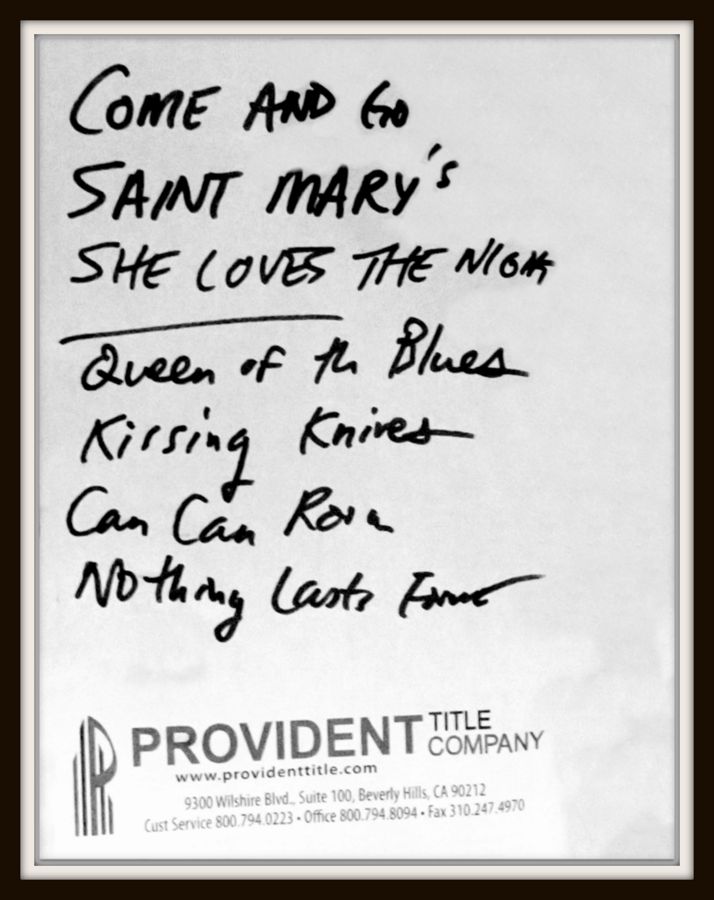 COME AND GO
SAINT MARY'S
SHE LOVES THE NIGHT
Queen of th Blues
Kissing Knives
Can Can
Nothing Lasts
PROVIDENT TITLE COMPANY
www.providenttitle.com
9300 Wilshire Blvd., Suite 100, Beverly Hills, CA 90212
Cust Service 800.794.0223 • Office 800.794.8094 • Fax 310.247.4970